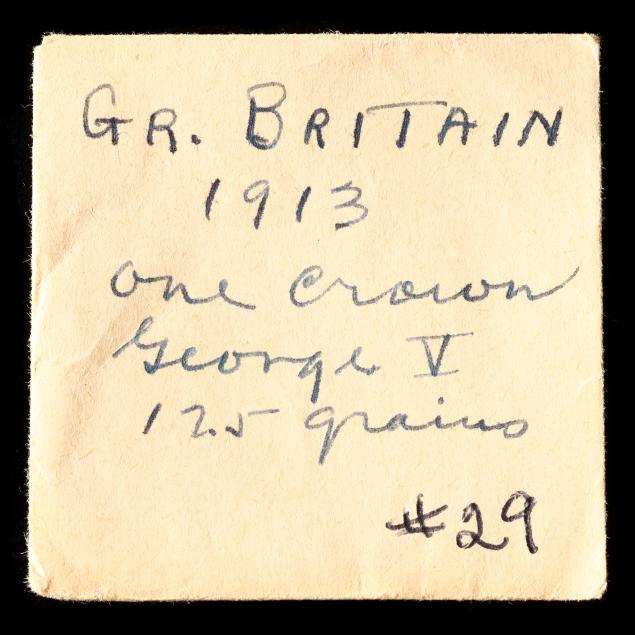 GR. BRITAIN
1913
one crown
George V
125 grains
#29